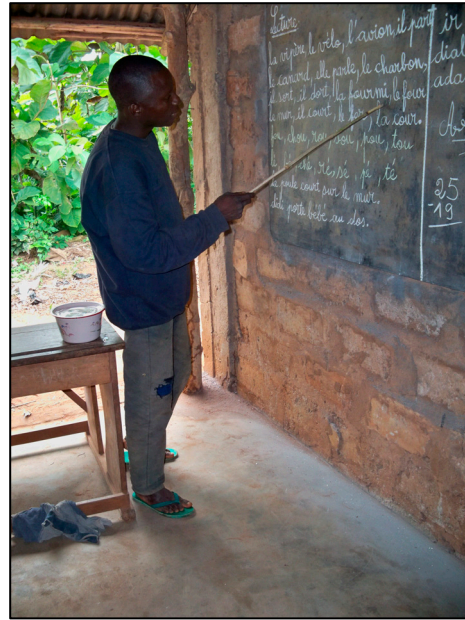 Lecture
la vipère, le vélo, l'avion, il part
le canard, elle parle, le charbon,
il sort, il dort, la fourmi, le four
le mur, il court, le la cour.
chou, pou, tou
ré, sé, pé, té
la poule court sur le mur.
porte bébé au dos.
ir
dia
ada
25
-19